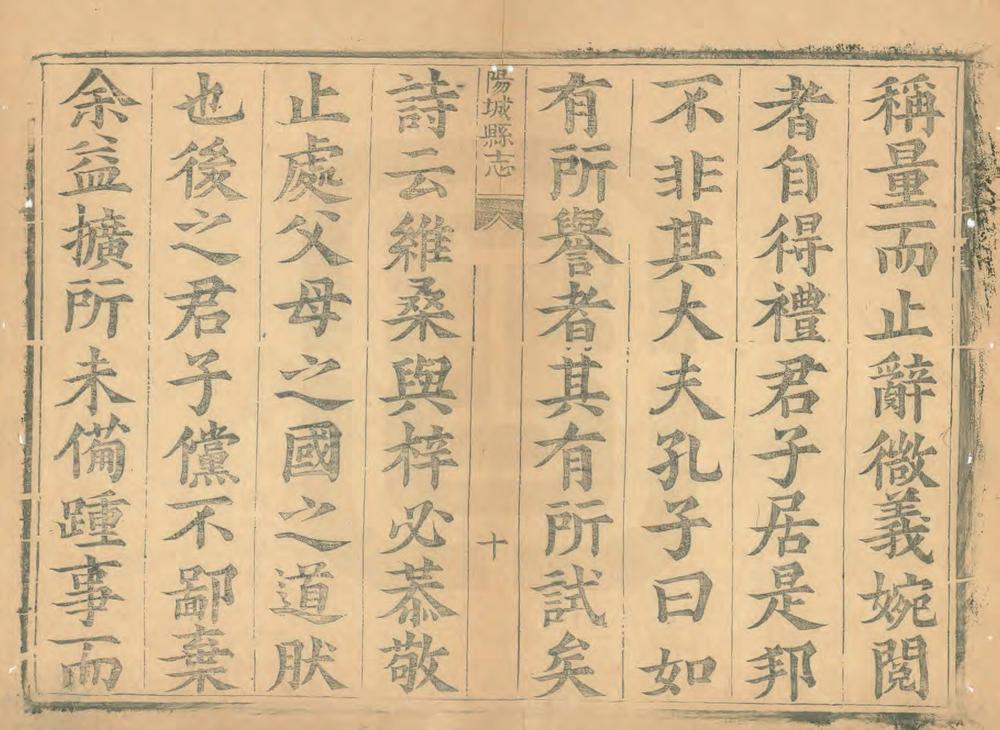 稱量而止辭微義婉閱
者自得禮君子居是邦
不非其大夫孔子曰如
有所譽者其有所試矣
陽城縣志
十
詩云維桑與梓必恭敬
止處父母之國之道肰
也後之君子儻不鄙棄
余益擴所未備踵事而